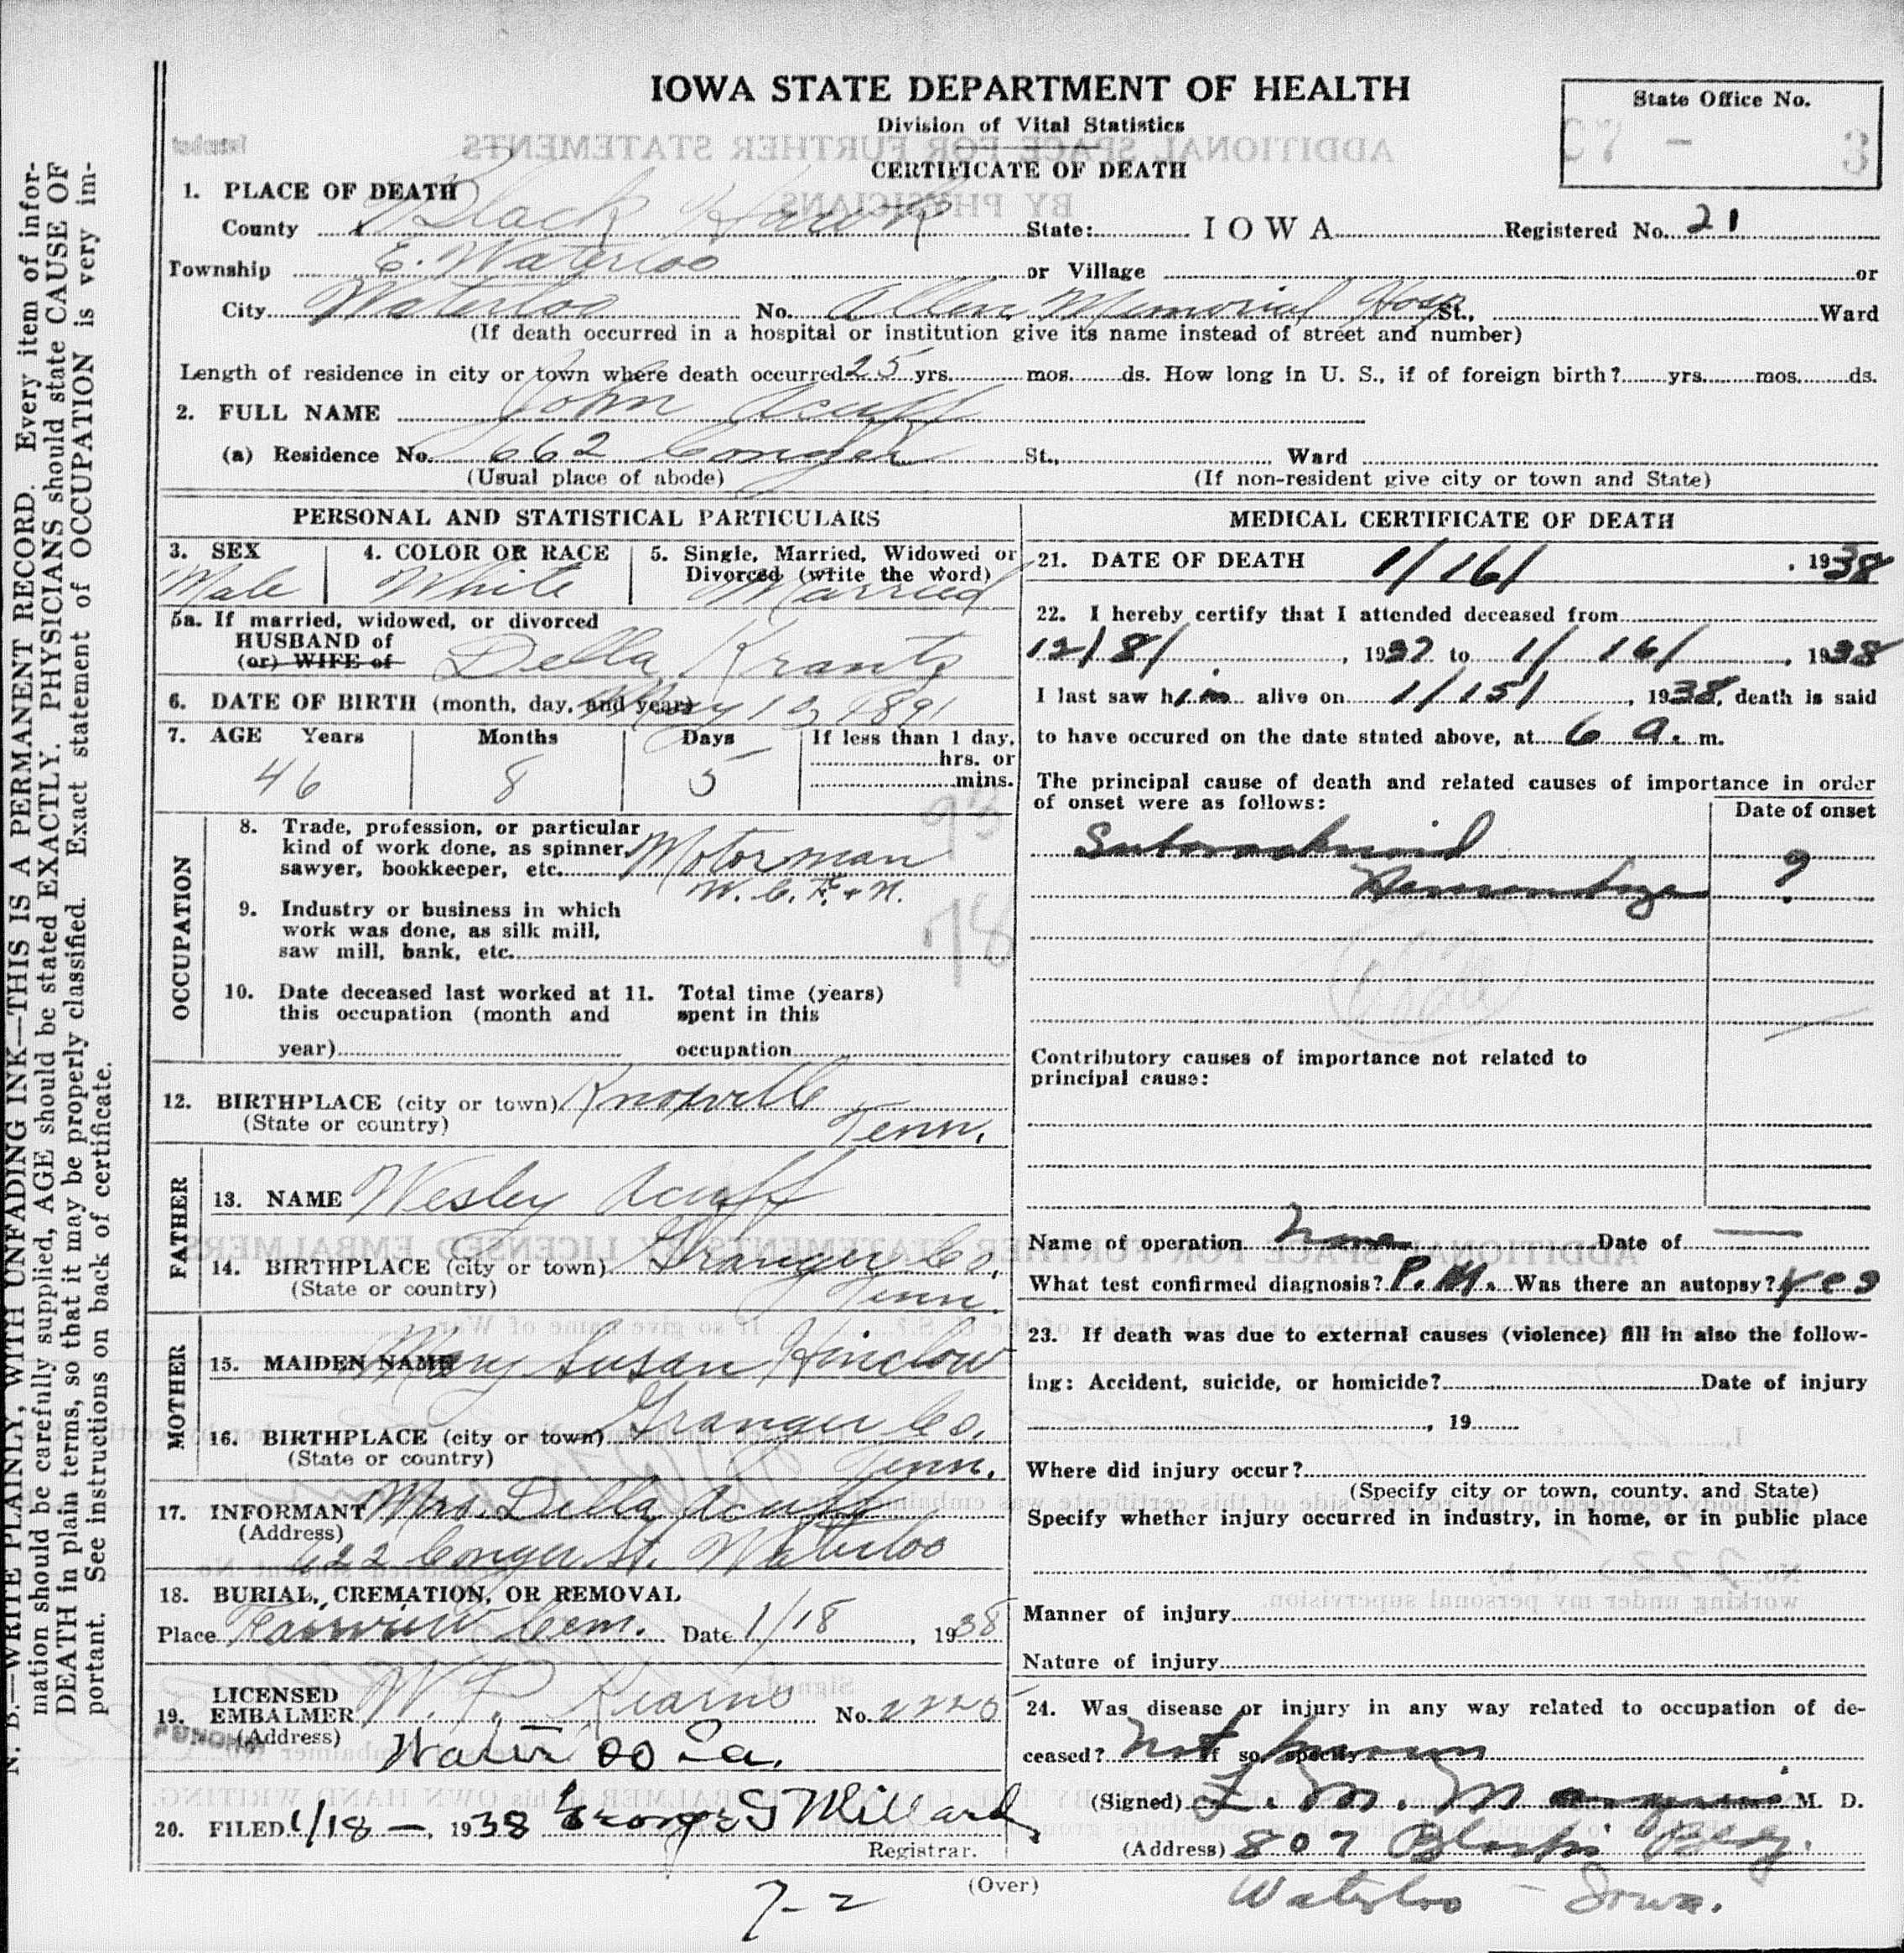 IOWA STATE DEPARTMENT OF HEALTH
Division of Vital Statistics
CERTIFICATE OF DEATH
State Office No.
97 - 3
1. PLACE OF DEATH
County Black Hawk State: IOWA Registered No. 21
Township E. Waterloo or Village or
City Waterloo No. Allen Memorial Hosp St., Ward
(If death occurred in a hospital or institution give its name instead of street and number)
Length of residence in city or town where death occurred 25 yrs. mos. ds. How long in U. S., if of foreign birth? yrs. mos. ds.
2. FULL NAME John Acuff
(a) Residence No. 662 Conger St., Ward
(Usual place of abode) (If non-resident give city or town and State)
PERSONAL AND STATISTICAL PARTICULARS
3. SEX 4. COLOR OR RACE 5. Single, Married, Widowed or
Divorced (write the word)
Male White Married
5a. If married, widowed, or divorced
HUSBAND of
(or) WIFE of Della Krantz
6. DATE OF BIRTH (month, day, and year) May 1891
7. AGE Years Months Days If less than 1 day,
hrs. or
46 8 5 mins.
93
78
OCCUPATION
8. Trade, profession, or particular
kind of work done, as spinner,
sawyer, bookkeeper, etc. Motorman
W. C. F. & N.
9. Industry or business in which
work was done, as silk mill,
saw mill, bank, etc.
10. Date deceased last worked at 11. Total time (years)
this occupation (month and spent in this
year) occupation
12. BIRTHPLACE (city or town) Knoxville
(State or country) Tenn.
FATHER
13. NAME Wesley Acuff
14. BIRTHPLACE (city or town) Granger Co.
(State or country) Tenn.
MOTHER
15. MAIDEN NAME Mary Susan Hinclow
16. BIRTHPLACE (city or town) Granger Co.
(State or country) Tenn.
17. INFORMANT Mrs. Della Acuff
(Address) 622 Conger St. Waterloo
18. BURIAL, CREMATION, OR REMOVAL
Place Fairview Cem. Date 1/18, 1938
19. LICENSED
EMBALMER W. P. Kearns No. 2225
(Address) Waterloo Ia.
PUNCHED
20. FILED 1/18 -, 1938 George S Millard
Registrar.
MEDICAL CERTIFICATE OF DEATH
21. DATE OF DEATH 1/16/, 1938
22. I hereby certify that I attended deceased from
12/8/, 1937 to 1/16/, 1938
I last saw him alive on 1/15/, 1938, death is said
to have occured on the date stated above, at 6 a. m.
The principal cause of death and related causes of importance in order
of onset were as follows:
Date of onset
Subarachnoid ?
Hemorrhage
Contributory causes of importance not related to
principal cause:
Name of operation None Date of —
What test confirmed diagnosis? P.M. Was there an autopsy? Yes
23. If death was due to external causes (violence) fill in also the follow-
ing: Accident, suicide, or homicide? Date of injury
, 19
Where did injury occur?
(Specify city or town, county, and State)
Specify whether injury occurred in industry, in home, or in public place
Manner of injury
Nature of injury
24. Was disease or injury in any way related to occupation of de-
ceased? Not known If so, specify
(Signed) L. M. M. D.
(Address) 807 Bldg.
Waterloo - Iowa.
(Over)
7-2
N. B.—WRITE PLAINLY, WITH UNFADING INK—THIS IS A PERMANENT RECORD. Every item of infor-
mation should be carefully supplied, AGE should be stated EXACTLY. PHYSICIANS should state CAUSE OF
DEATH in plain terms, so that it may be properly classified. Exact statement of OCCUPATION is very im-
portant. See instructions on back of certificate.